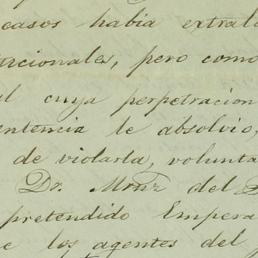 casos habia extrali
tucionales, pero como
al cuya perpetracion
entencia le absolvió,
de violarla, volunta
Dr. Mruz del
pretendido Empera
e los agentes del